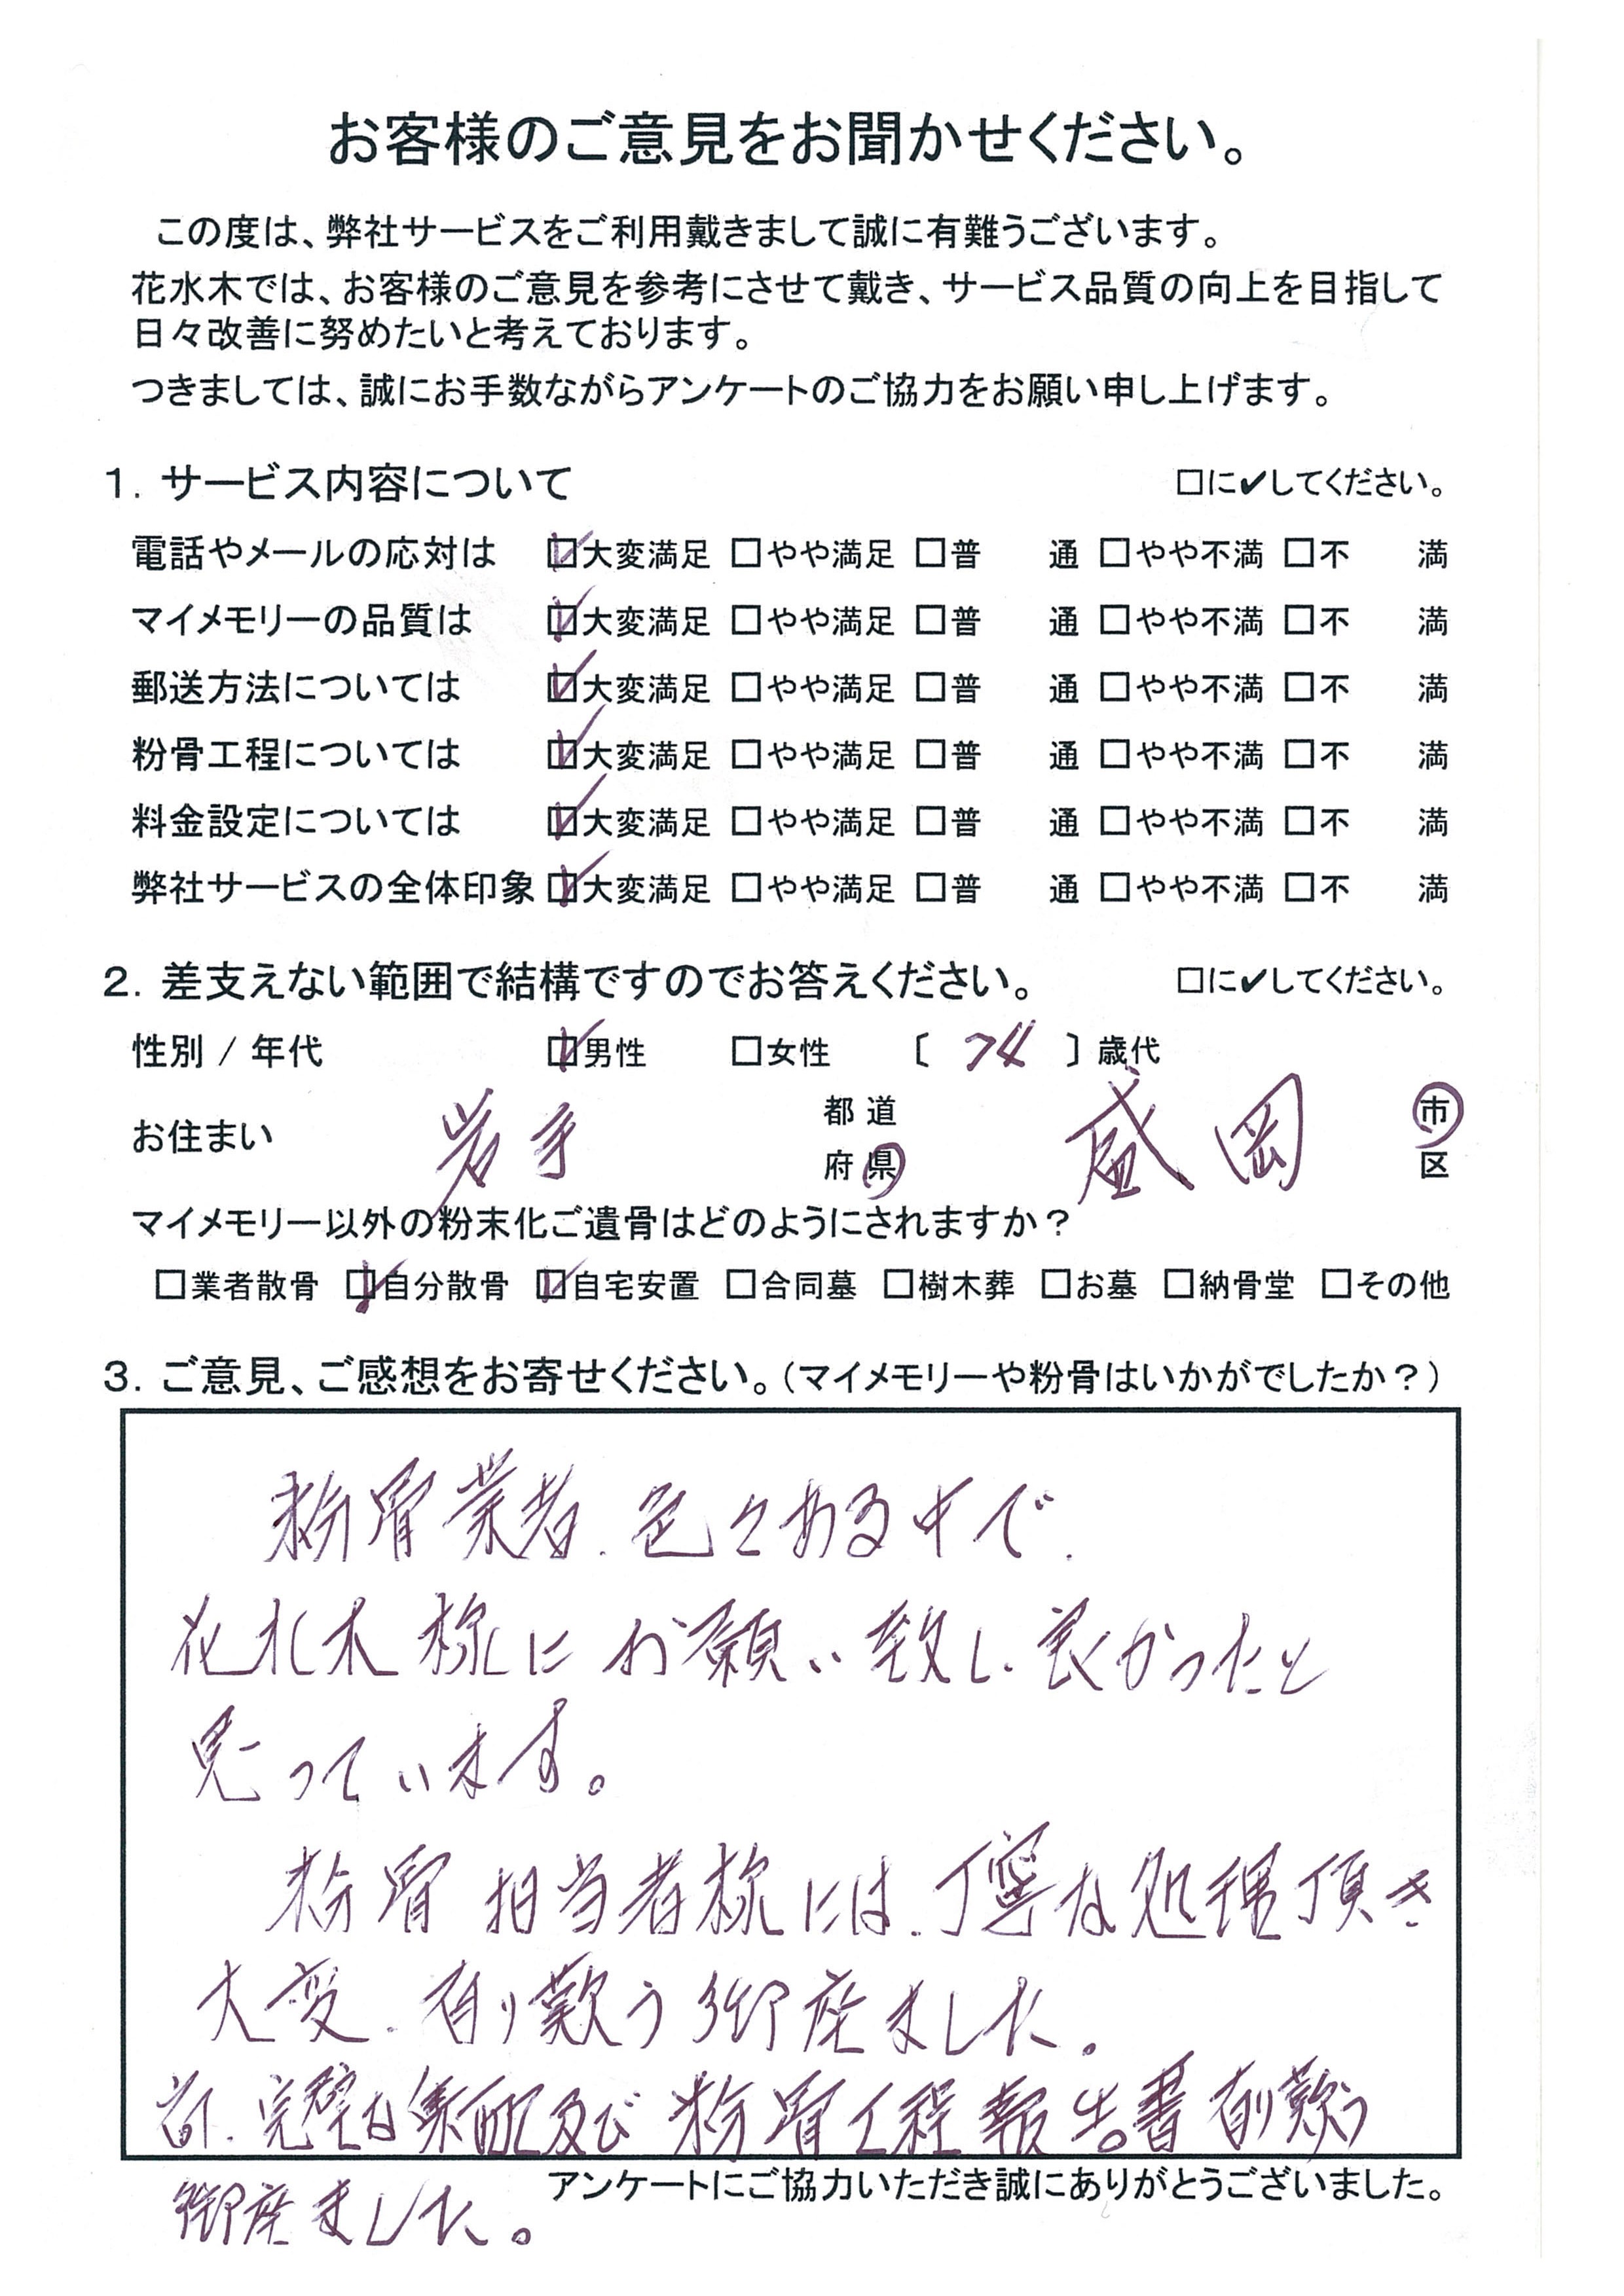 お客様のご意見をお聞かせください。
この度は、弊社サービスをご利用戴きまして誠に有難うございます。
花水木では、お客様のご意見を参考にさせて戴き、サービス品質の向上を目指して
日々改善に努めたいと考えております。
つきましては、誠にお手数ながらアンケートのご協力をお願い申し上げます。
1. サービス内容について □に✔してください。
電話やメールの応対は ☑大変満足 □やや満足 □普 通 □やや不満 □不 満
マイメモリーの品質は ☑大変満足 □やや満足 □普 通 □やや不満 □不 満
郵送方法については ☑大変満足 □やや満足 □普 通 □やや不満 □不 満
粉骨工程については ☑大変満足 □やや満足 □普 通 □やや不満 □不 満
料金設定については ☑大変満足 □やや満足 □普 通 □やや不満 □不 満
弊社サービスの全体印象 ☑大変満足 □やや満足 □普 通 □やや不満 □不 満
2. 差支えない範囲で結構ですのでお答えください。 □に✔してください。
性別 / 年代 ☑男性 □女性 〔 74 〕歳代
お住まい 岩手 都道府県 盛岡 市区
マイメモリー以外の粉末化ご遺骨はどのようにされますか？
□業者散骨 ☑自分散骨 ☑自宅安置 □合同墓 □樹木葬 □お墓 □納骨堂 □その他
3. ご意見、ご感想をお寄せください。（マイメモリーや粉骨はいかがでしたか？）
粉骨業者、色々ある中で、
花水木様にお願い致し、良かったと
思っています。
粉骨担当者様には、丁寧な処理頂き
大変、有り難う御座ました。
尚、完璧な梱配及び粉骨工程報告書有り難う
御座ました。
アンケートにご協力いただき誠にありがとうございました。